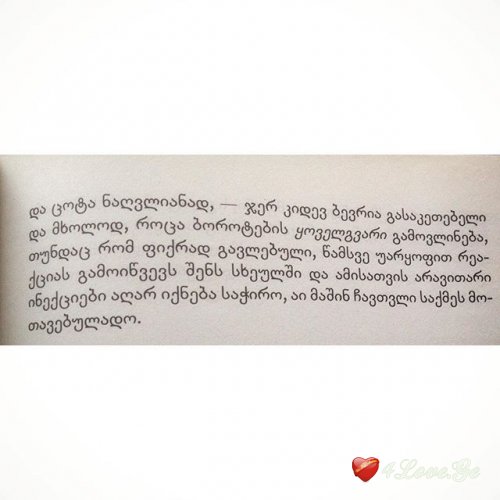 და ცოტა ნაღვლიანად, — ჯერ კიდევ ბევრია გასაკეთებელი
და მხოლოდ, როცა ბოროტების ყოველგვარი გამოვლინება,
თუნდაც რომ ფიქრად გავლებული, წამსვე უარყოფით რეა-
ქციას გამოიწვევს შენს სხეულში და ამისათვის არავითარი
ინექციები აღარ იქნება საჭირო, აი მაშინ ჩავთვლი საქმეს მო-
თავებულადო.
4Love.Ge